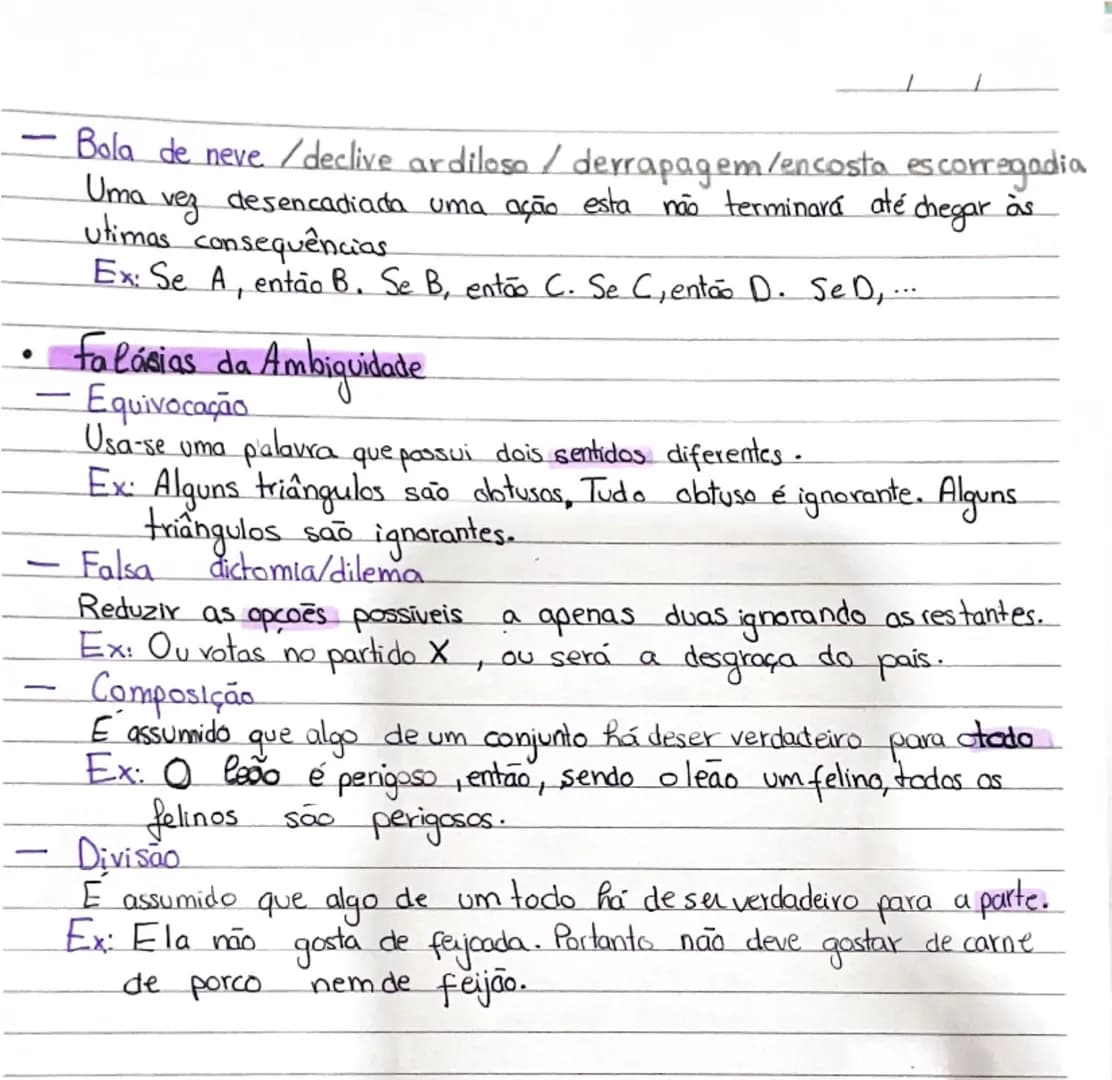 / /
— Bola de neve /declive ardiloso / derrapagem/encosta escorregadia
Uma vez desencadiada uma ação esta não terminará até chegar às
utimas consequências
Ex: Se A, então B. Se B, então C. Se C, então D. Se D, ...
• Falásias da Ambiguidade
— Equivocação
Usa-se uma palavra que possui dois sentidos diferentes.
Ex: Alguns triângulos são obtusos, Tudo obtuso é ignorante. Alguns
triângulos são ignorantes.
— Falsa dictomia/dilema
Reduzir as opções possíveis a apenas duas ignorando as restantes.
Ex: Ou votas no partido X, ou será a desgraça do país.
— Composição
É assumido que algo de um conjunto há de ser verdadeiro para o todo
Ex: O leão é perigoso, então, sendo o leão um felino, todos os
felinos são perigosos.
— Divisão
É assumido que algo de um todo há de ser verdadeiro para a parte.
Ex: Ela não gosta de feijoada. Portanto não deve gostar de carne
de porco nem de feijão.